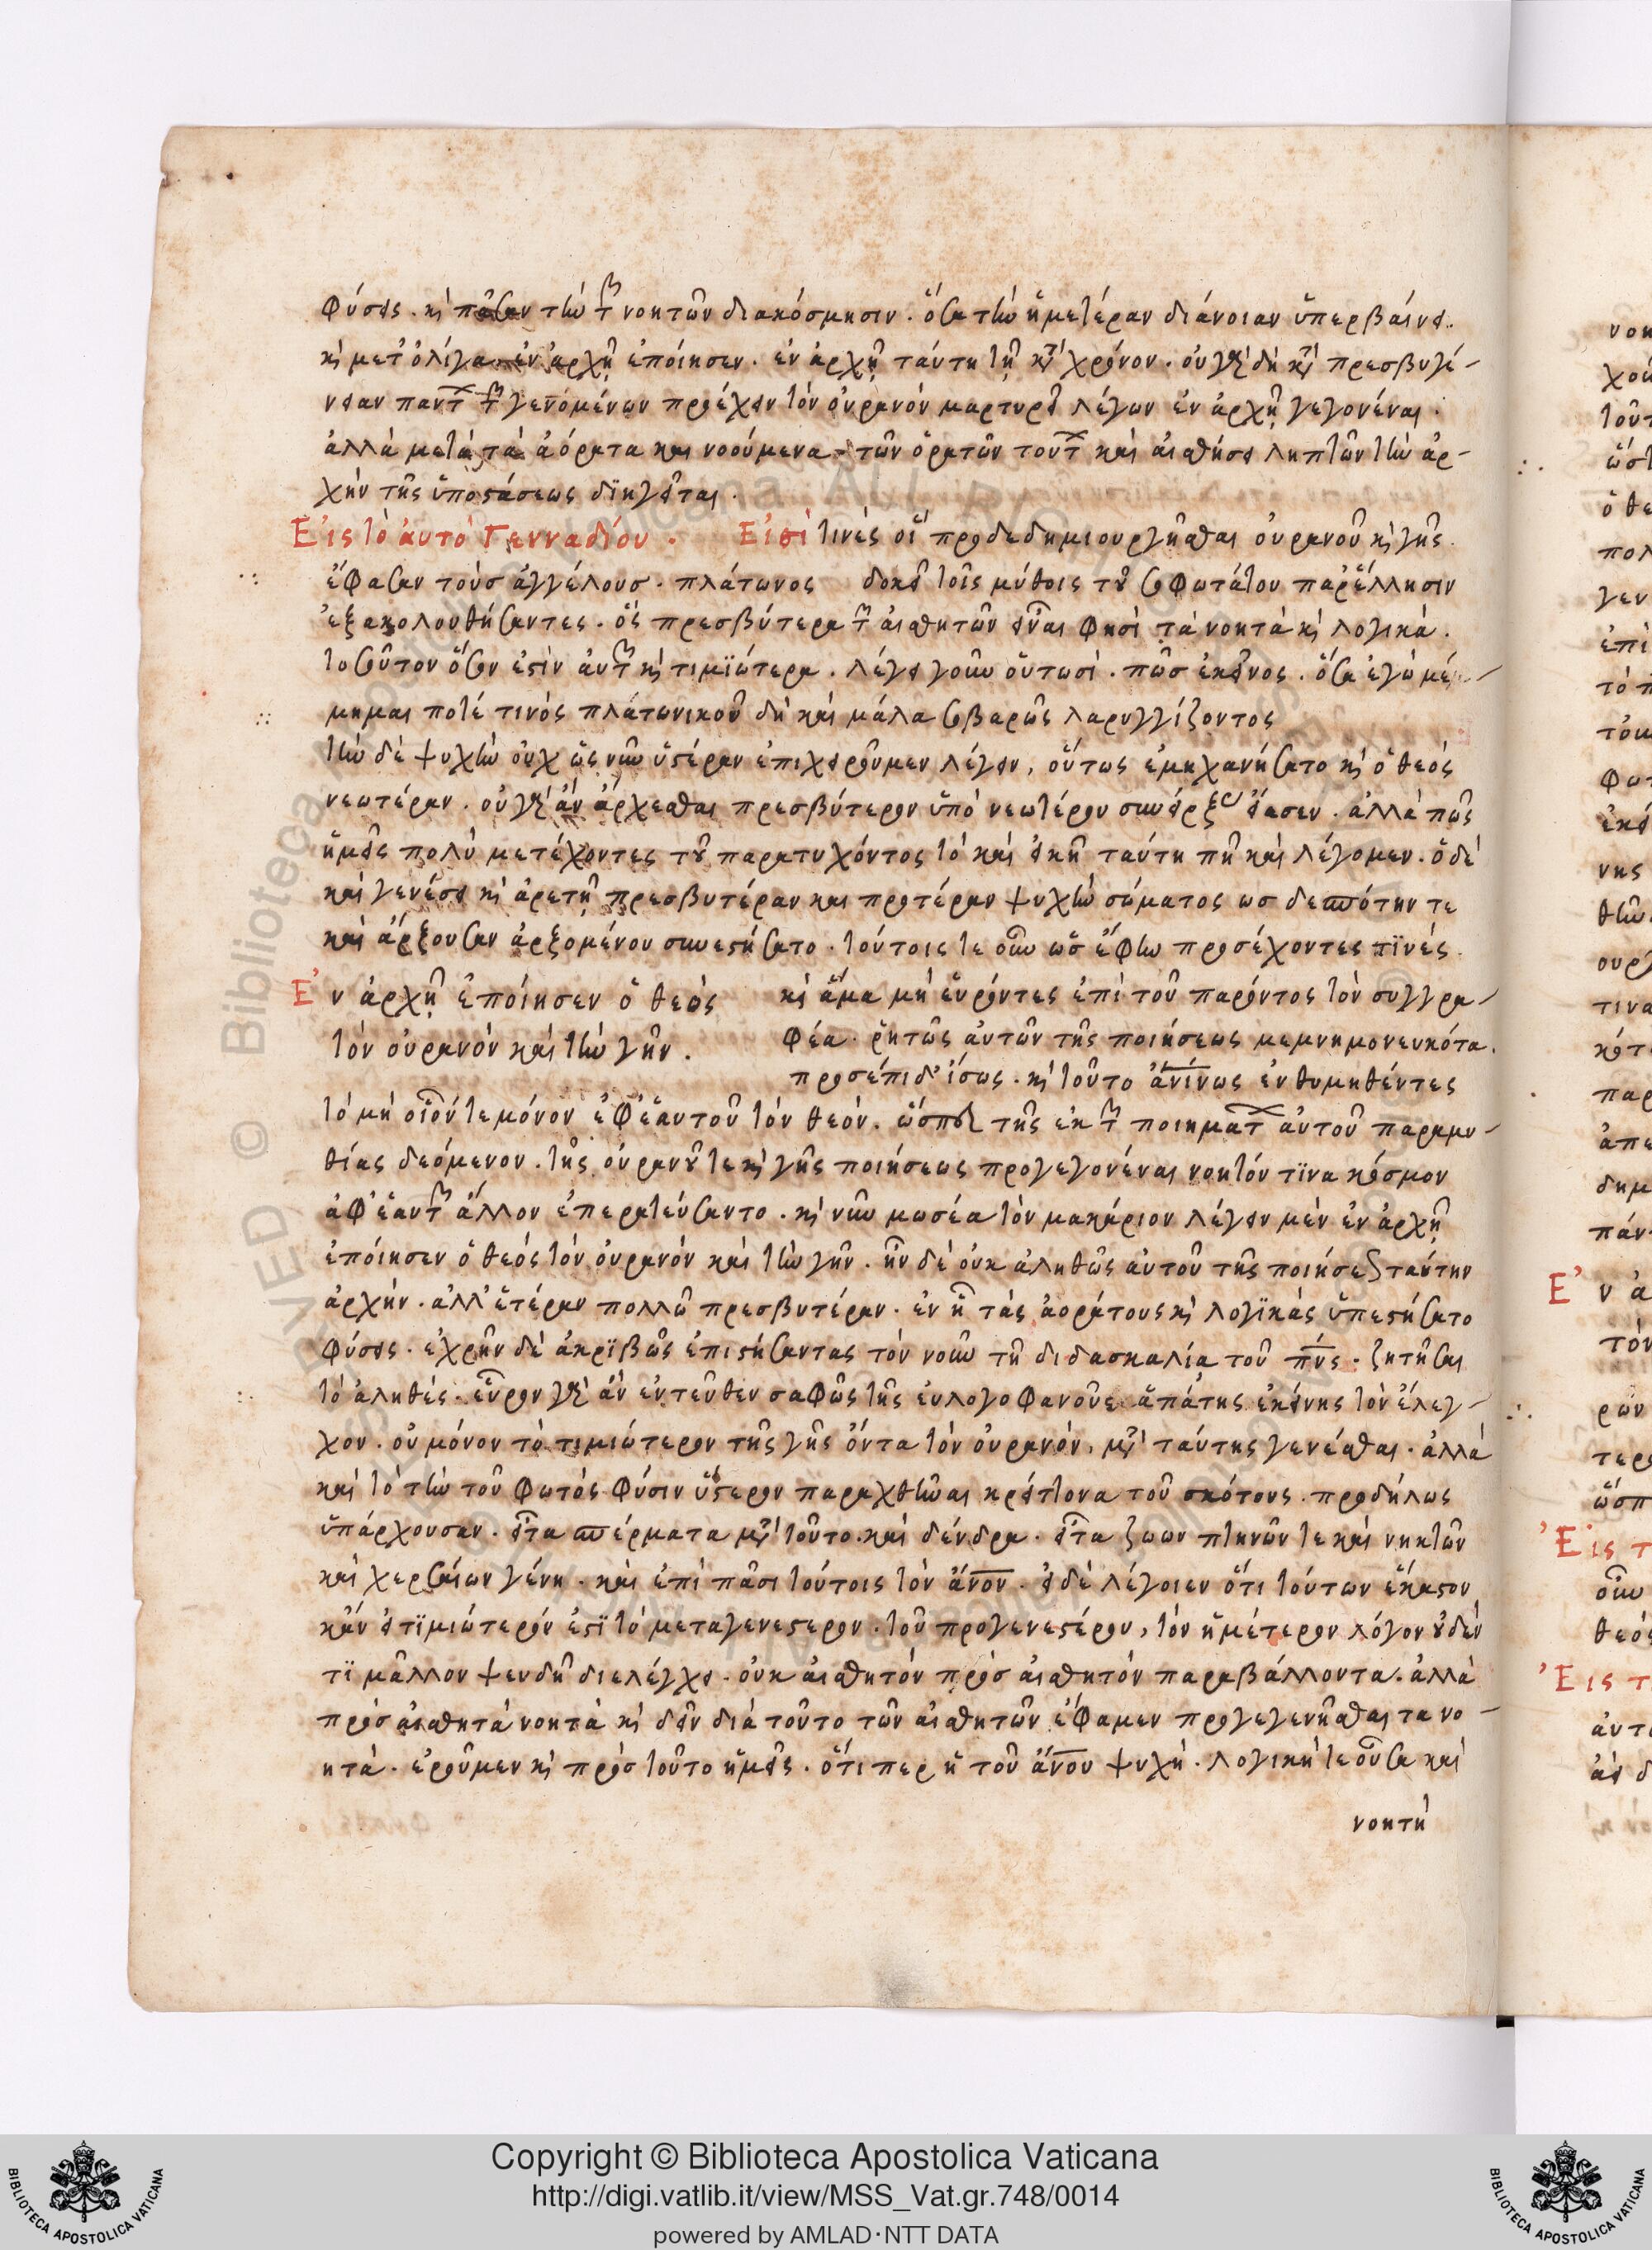 φύσεις. κὶ πᾶσαν τὴν τῶν νοητῶν διακόσμησιν. ὅσα τὴν ἡμετέραν διάνοιαν ὑπερβαίνει.
κὶ μετ' ὀλίγα. ἐν ἀρχῆ ἐποίησεν. ἐν ἀρχῆ ταύτη τῆ κατὰ χρόνον. οὐ γὰρ δὴ κατὰ πρεσβυγέ-
νειαν παντων τῶν γενομένων προέχειν τὸν οὐρανὸν μαρτυρεῖ λέγων ἐν ἀρχῆ γεγονέναι.
ἀλλὰ μετὰ τὰ ἀόρατα και νοούμενα. τῶν ὁρατῶν τούτων καὶ αἰσθήσει ληπτῶν τὴν ἀρ-
χὴν τῆς ὑποστάσεως διηγεῖται.
Εἰς τὸ ἀυτὸ Γενναδίου. Εἰσὶ τινὲς οἳ προδεδημιουργῆσθαι οὐρανοῦ κὶ γῆς.
ἔφασαν τοὺσ ἀγγέλουσ. πλάτωνος δοκεῖ τοῖς μύθοις τοῦ σοφωτάτου παρ' ἕλλησιν
ἐξακολουθήσαντες. ὃς πρεσβύτερα τῶν αἰσθητῶν εἶναι φησὶ τὰ νοητὰ κὶ λογικά.
τοσοῦτον ὅσον ἐστὶν ἀυτῶν κὶ τιμιώτερα. λέγει γοῦν οὕτωσὶ. πῶσ ἐκεῖνος. ὅσα ἐγὼ μέ-
μνημαι ποτέ τινὸς πλάτωνικοῦ δὴ καὶ μάλα σοβαρῶς λαρυγγίζοντος
τὴν δὲ ψυχὴν οὐχ ὡς νῦν ὑστέραν ἐπιχειροῦμεν λέγειν, οὕτως ἐμηχανήσατο κὶ ὁ θεὸς
νεωτέραν. οὐ γὰρ ἂν ἄρχεσθαι πρεσβύτερον ὑπὸ νεωτέρου συνείρξας εἴασεν. ἀλλὰ πῶς
ἡμεῖς πολὺ μετέχοντες τοῦ παρατυχόντος τὸ καὶ εἰκῆ ταύτη πῆ καὶ λέγομεν. ὁ δὲ
καὶ γενέσει κὶ ἀρετῆ πρεσβυτέραν και προτέραν ψυχὴν σώματος ωσ δεσπότην τε
καὶ ἄρξουσαν ἀρξομένου συνεστήσατο. τούτοις τε οὖν ὡσ ἔφην προσέχοντες τινὲς.
Ἐν ἀρχῆ ἐποίησεν ὁ θεὸς
τὸν οὐρανὸν καὶ τὴν γῆν.
κὶ ἅμα μὴ εὑρόντες ἐπὶ τοῦ παρόντος τὸν συγγρα-
φέα. ῥητῶς ἀυτῶν τῆς ποιήσεως μεμνημονευκότα.
προσέπι δ' ἴσως. κὶ τοῦτο ἀνίνως ἐνθυμηθέντες
τὸ μὴ οἷον τε μόνον ἐφ' ἑαυτοῦ τὸν θεόν. ὥσπερ τῆς ἐκ τῶν ποιηματων ἀυτοῦ παραμυ-
θίας δεόμενον. τῆς οὐρανοῦ τε κὶ γῆς ποιήσεως προγεγονέναι νοητόν τινα κόσμον
ἀφ' ἑαυτῶν ἄλλον ἐπερατεύσαντο. κὶ νῦν μωσέα τὸν μακάριον λέγειν μὲν ἐν ἀρχῆ
ἐποίησεν ὁ θεὸς τὸν οὐρανὸν καὶ τὴν γῆν. ἦν δὲ οὐκ ἀληθῶς ἀυτοῦ τῆς ποιήσεως ταύτην
ἀρχήν. ἀλλ' ἑτέραν πολλῶ πρεσβυτέραν. ἐν ἧ τὰς ἀοράτους κὶ λογικὰς ὑπεστήσατο
φύσεις. ἐχρῆν δὲ ἀκριβῶς ἐπιστήσαντας τὸν νοῦν τῆ διδασκαλία τοῦ πνς. ζητῆσαι
τὸ ἀληθές. εὗρον γὰρ ἂν ἐντεῦθεν σαφῶς τῆς ἐυλογοφανοῦς ἀπάτης ἐκείνης τὸν ἔλεγ-
χον. οὐ μόνον τὸ τιμιώτερον τῆς γῆς ὄντα τὸν οὐρανὸν, μετὰ ταύτης γενέσθαι. ἀλλὰ
καὶ τὸ τὴν τοῦ φωτὸς φύσιν ὕστερον παραχθῆναι κρείττονα τοῦ σκότους. προδήλως
ὑπάρχουσαν. εἶτα σπέρματα μετὰ τοῦτο. καὶ δένδρα. εἶτα ζωων πτηνῶν τε καὶ νηκτῶν
καὶ χερσαίων γένη. καὶ ἐπὶ πᾶσι τούτοις τὸν ἄνον. εἰ δὲ λέγοιεν ὅτι τούτων ἕκαστον
κἂν εἰ τιμιώτερόν ἐστι τὸ μεταγενεστερον. τοῦ προγενεστέρου, τὸν ἡμέτερον λόγον οὐδέν
τι μᾶλλον ψευδῆ διελέγχει. οὐκ αἰσθητὸν πρὸσ αἰσθητὸν παραβάλλοντα. ἀλλὰ
πρὸσ αἰσθητὰ νοητὰ κὶ δεῖν διὰ τοῦτο τῶν αἰσθητῶν ἔφαμεν προγεγενῆσθαι τα νο-
ητά. ἐροῦμεν κὶ πρὸσ τοῦτο ἡμεῖς. ὅτι περ ἡ τοῦ ἄνου ψυχὴ. λογική τε οὖσα καὶ
νοητὴ
Copyright © Biblioteca Apostolica Vaticana
http://digi.vatlib.it/view/MSS_Vat.gr.748/0014
powered by AMLAD·NTT DATA